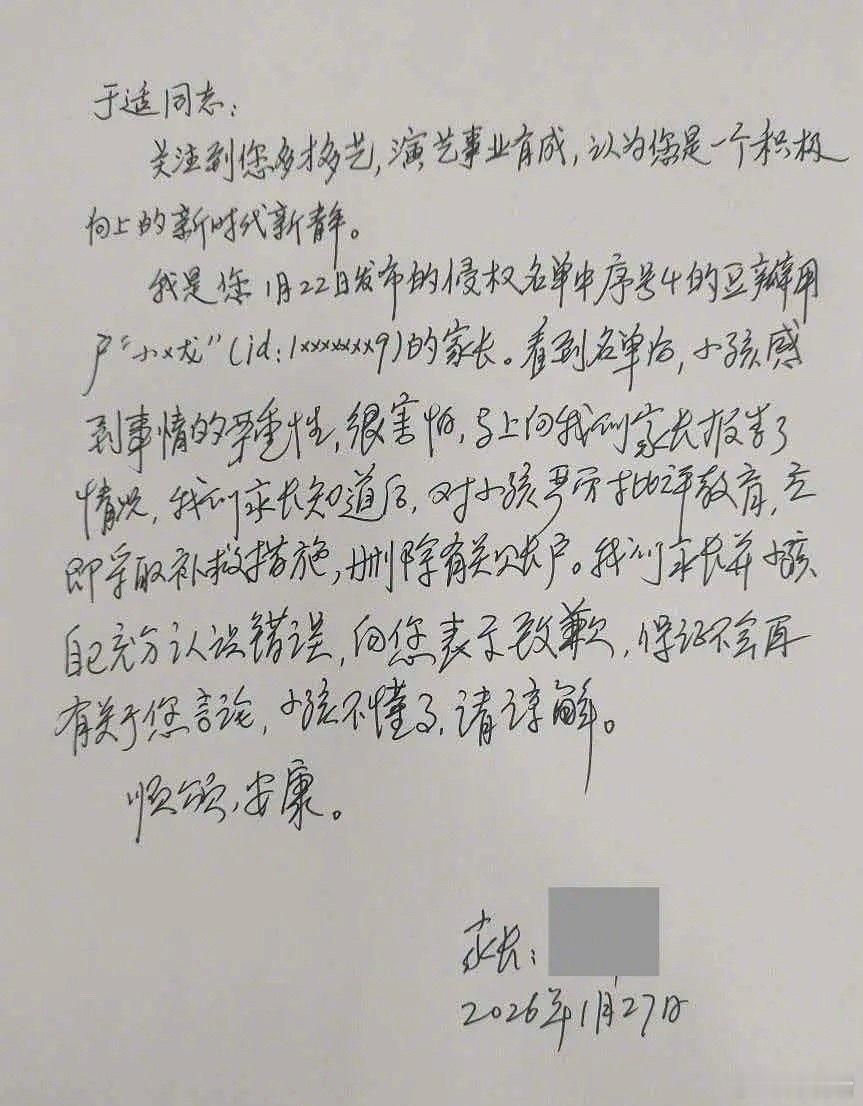 于适同志：
关注到您多才多艺，演艺事业有成，认为您是一个积极
向上的新时代新青年。
我是您1月22日发布的侵权名单中序号4的豆瓣用
户“小x龙”(id：1xxxxxxx9)的家长。看到名单后，小孩感
到事情的严重性，很害怕，马上向我们家长报告了
情况，我们家长知道后，对小孩严厉批评教育，立
即采取补救措施，删除有关账户。我们家长并小孩
自己充分认识错误，向您表示致歉，保证不会再
有关于您言论，小孩不懂事，请谅解。
顺颂，安康。
家长：
2026年1月27日